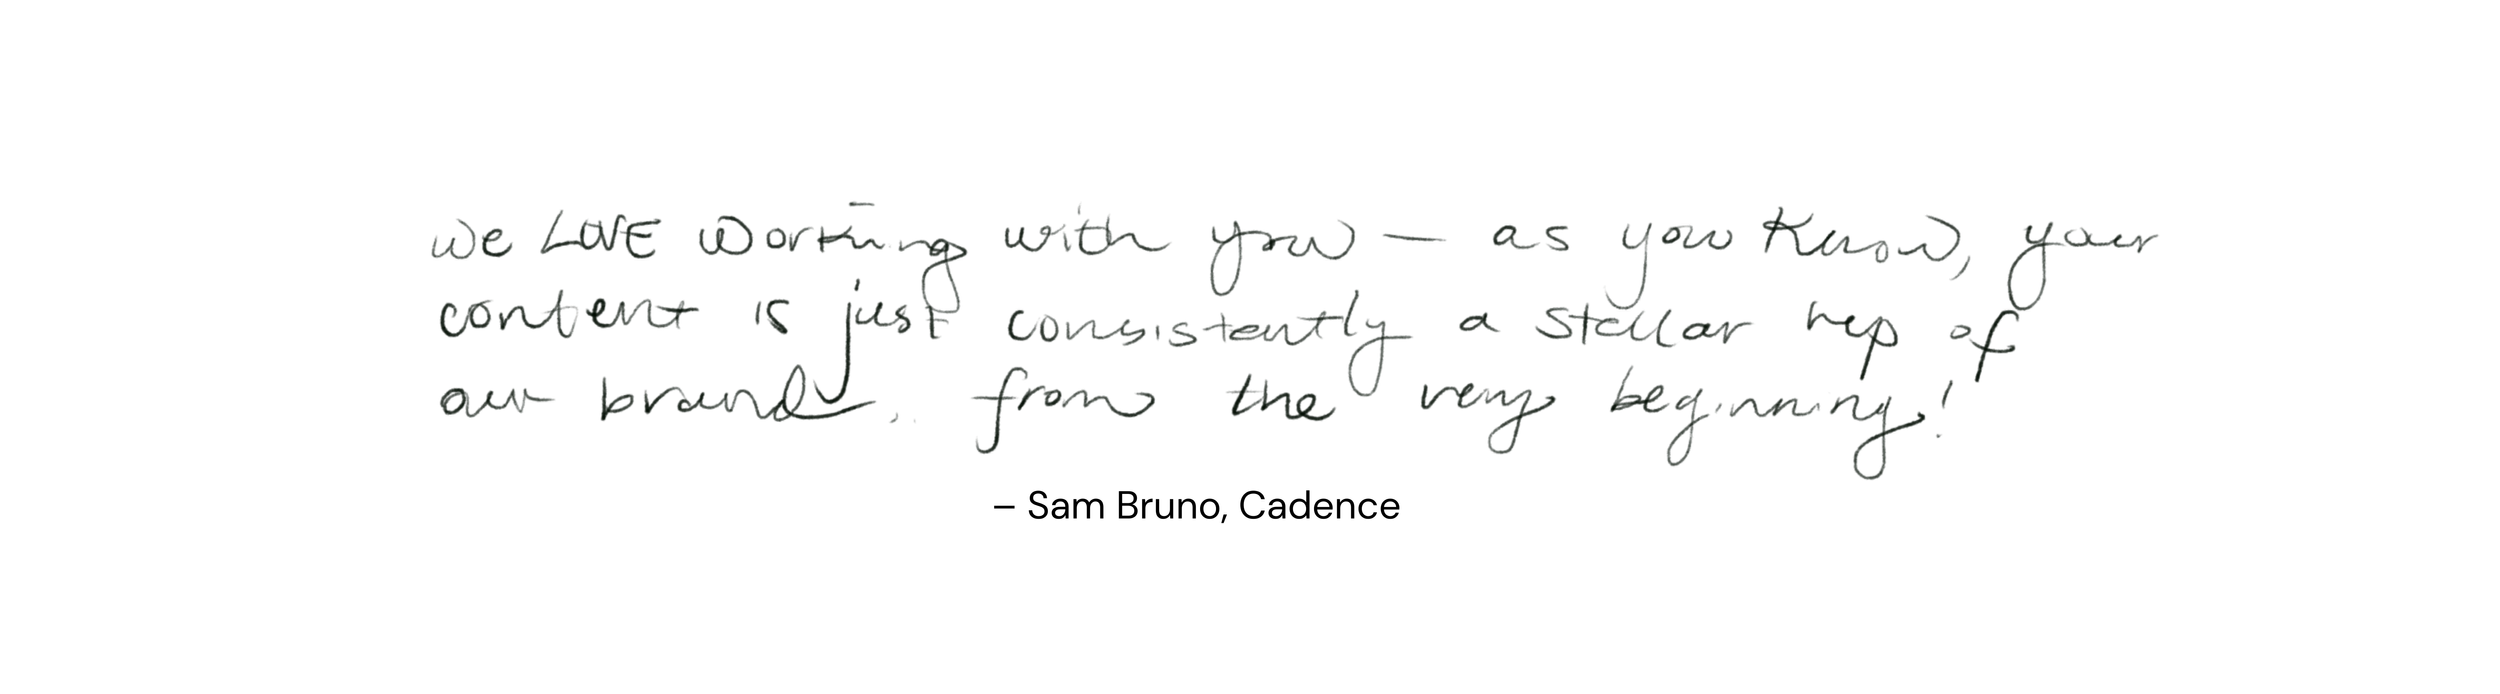 we LOVE working with you — as you know, your
content is just consistently a stellar rep of
our brand. from the very beginning!
– Sam Bruno, Cadence